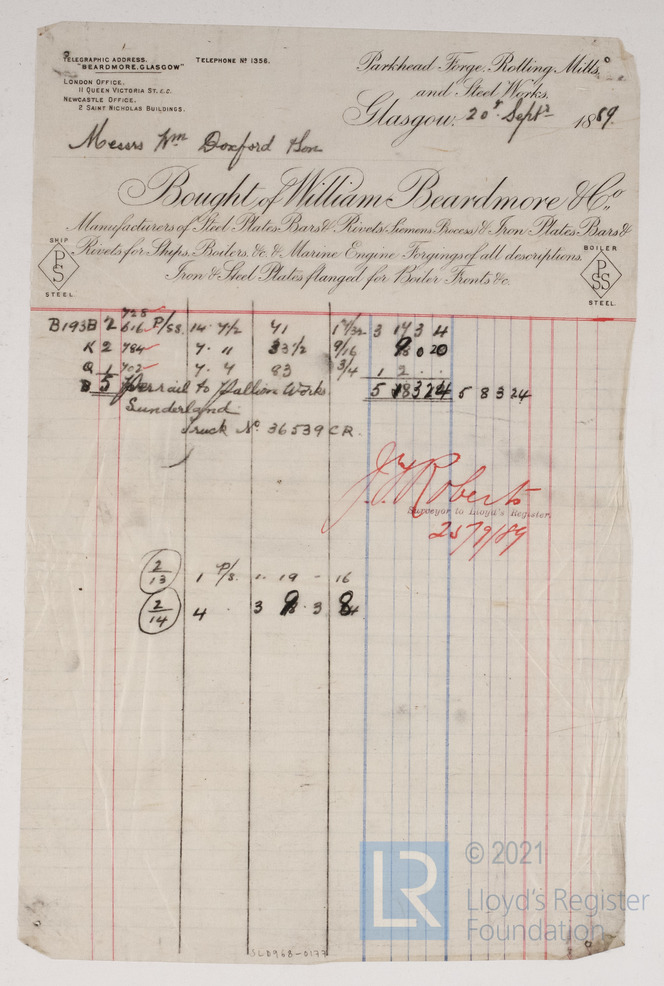 TELEGRAPHIC ADDRESS. TELEPHONE Nº 1356.
"BEARDMORE.GLASGOW"
LONDON OFFICE.
11 QUEEN VICTORIA ST. E.C.
NEWCASTLE OFFICE.
2 SAINT NICHOLAS BUILDINGS.
Parkhead Forge, Rolling Mills,
and Steel Works,
Glasgow, 20th Septr 1889.
Messrs Wm Doxford & Son
Bought of William Beardmore & Co.,
Manufacturers of Steel Plates Bars & Rivets (Siemens Process) & Iron Plates Bars &
Rivets for Ships, Boilers, &c. & Marine Engine Forgings of all descriptions.
Iron & Steel Plates flanged for Boiler Fronts &c.
SHIP
PS
STEEL.
BOILER
PSS
STEEL.
728
B193B 2 616 P/SS. 14 . 7/2 41 17/32 3 17 3 4
K 2 784 7 . 11 33 1/2 9/16 0 20
Q 1 702 7 . 7 83 3/4 1 2 . .
5 Per rail to Pallion Works 5 8 3 24 5 8 3 24
Sunderland
Truck No. 36539 C R.
J. Roberts
Surveyor to Lloyd's Register.
25/9/89
2/13 1 P/S. 1 . 19 - 16
2/14 4 . 3 9 . 3 8
SLD968-0177
LR
© 2021
Lloyd's Register
Foundation